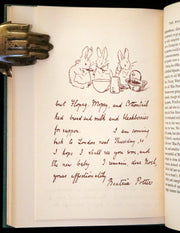 but Flopsy, Mopsy, and Cottontail
had bread and milk and blackberries
for supper. I am coming
back to London next Thursday, so
I hope I shall see you soon, and
the new baby. I remain, dear Noel,
yours affectionately
Beatrix Potter